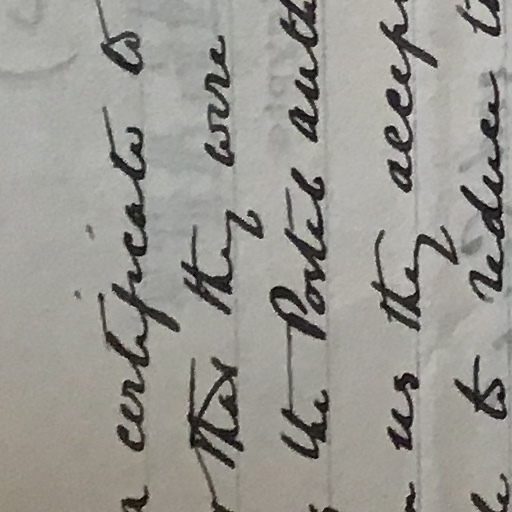 a certificate to
that they were
the Postal auth
us they accep
to reduce t